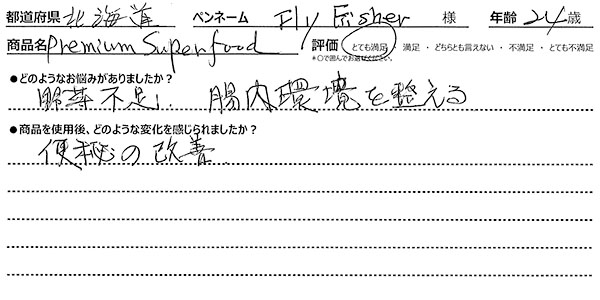 都道府県 北海道 ペンネーム Fly Fisher 様 年齢 24歳
商品名 Premium Superfood 評価 とても満足 ・ 満足 ・ どちらとも言えない ・ 不満足 ・ とても不満足
*○で囲んでお選びください。
●どのようなお悩みがありましたか？
野菜不足、腸内環境を整える
●商品を使用後、どのような変化を感じられましたか？
便秘の改善